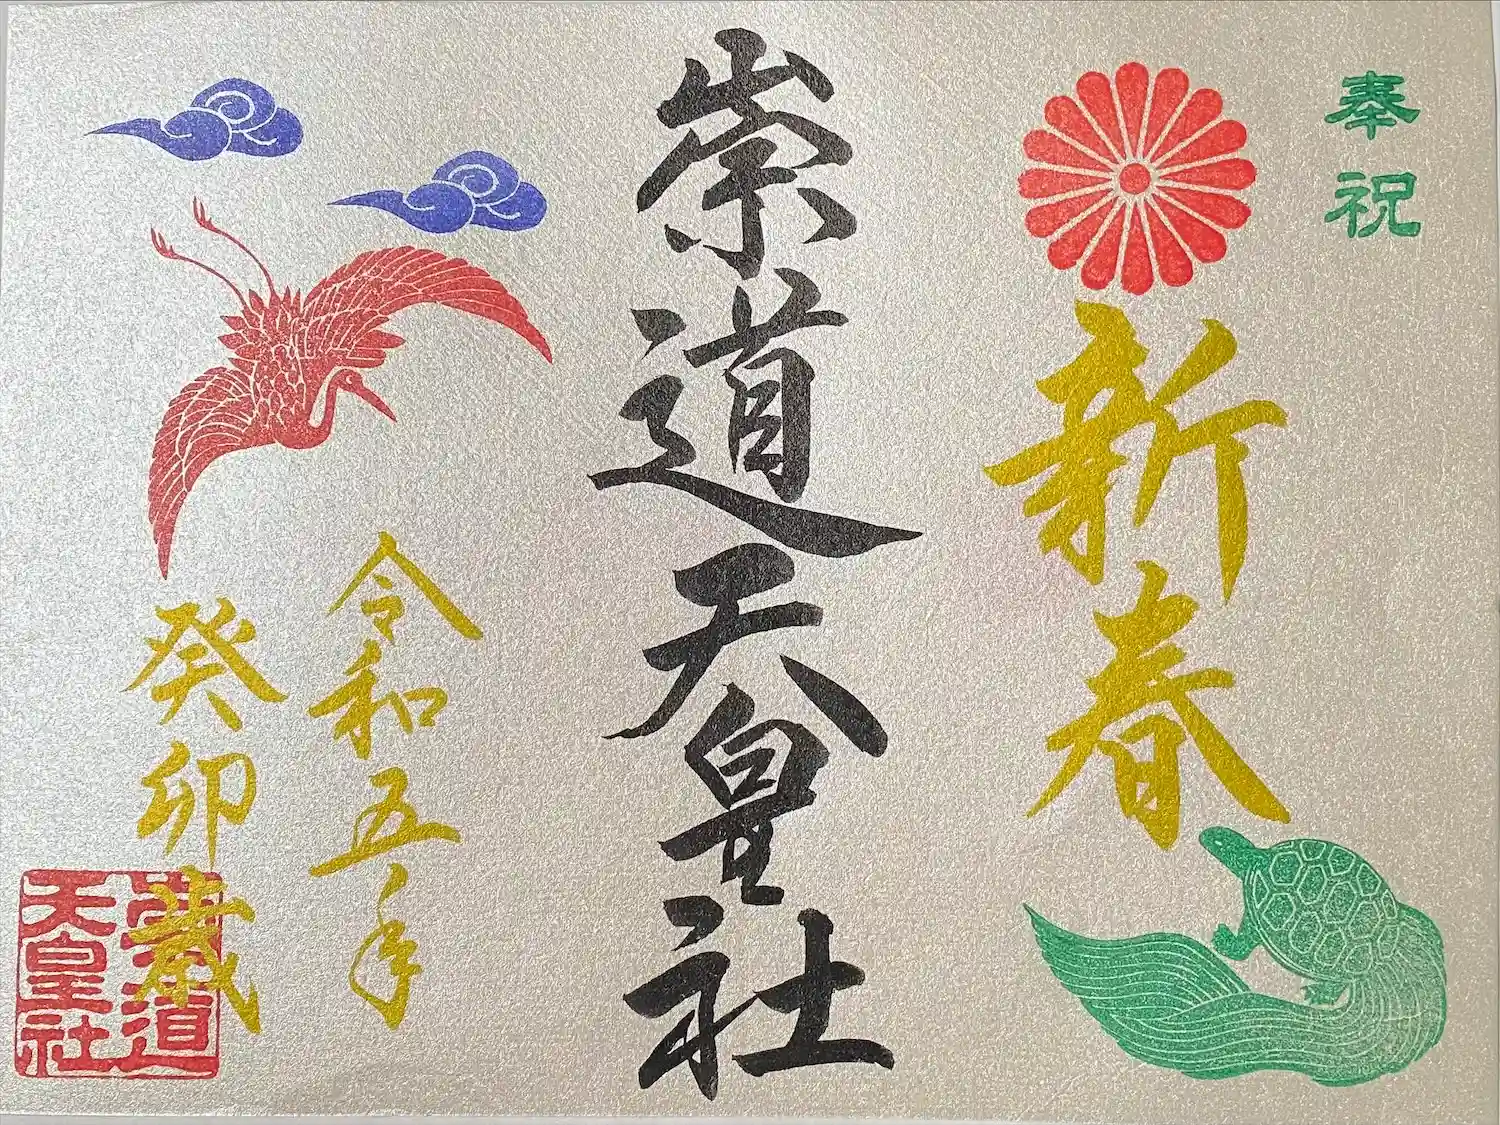 奉祝
新春
崇道天皇社
令和五年
癸卯歳
崇道
天皇社